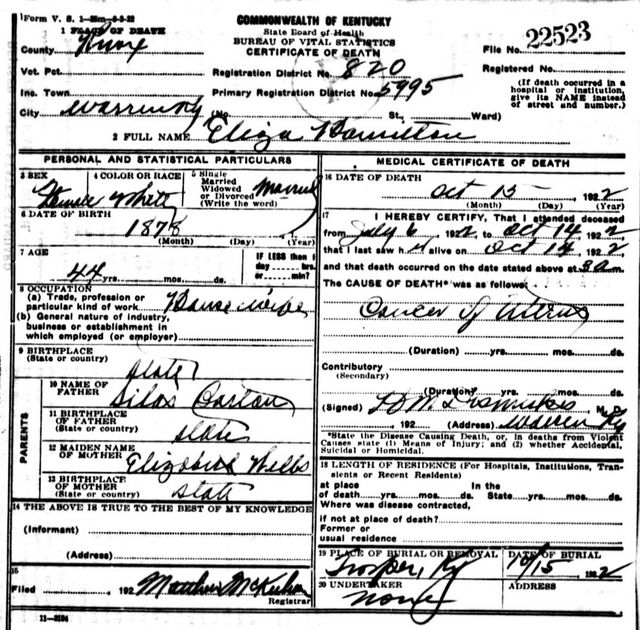 Form V. S. 1-35m-5-3-22
COMMONWEALTH OF KENTUCKY
State Board of Health
BUREAU OF VITAL STATISTICS
CERTIFICATE OF DEATH
1 PLACE OF DEATH
County Knox
File No. 22523
Vot. Pct.
Registration District No. 820
Registered No.
Inc. Town
Primary Registration District No. 5995
(If death occurred in a hospital or institution, give its NAME instead of street and number.)
City Warren Ky (No. St., Ward)
2 FULL NAME Eliza Hamilton
PERSONAL AND STATISTICAL PARTICULARS
3 SEX Female
4 COLOR OR RACE White
5 Single Married Widowed or Divorced (Write the word) Married
6 DATE OF BIRTH
1878
(Month) (Day) (Year)
7 AGE
44 yrs. mos. ds.
IF LESS than 1 day.... hrs. or.... min?
8 OCCUPATION
(a) Trade, profession or particular kind of work Housewife
(b) General nature of industry, business or establishment in which employed (or employer)
9 BIRTHPLACE
(State or country) State
PARENTS
10 NAME OF FATHER Silas
11 BIRTHPLACE OF FATHER
(State or country) State
12 MAIDEN NAME OF MOTHER Elizabeth Webb
13 BIRTHPLACE OF MOTHER
(State or country) State
14 THE ABOVE IS TRUE TO THE BEST OF MY KNOWLEDGE
(Informant)
(Address)
15
Filed , 192
Registrar
11-3184
MEDICAL CERTIFICATE OF DEATH
16 DATE OF DEATH
Oct 15 , 1922
(Month) (Day) (Year)
17 I HEREBY CERTIFY, That I attended deceased
from July 6 1922, to Oct 14 1922
that I last saw h alive on Oct 14 1922,
and that death occurred on the date stated above at 5 a m.
The CAUSE OF DEATH* was as follows:
Cancer of Uterus
(Duration) yrs. mos. ds.
Contributory
(Secondary)
(Duration) yrs. mos. ds.
(Signed) M. D.
, 192 (Address) Warren Ky
*State the Disease Causing Death, or, in deaths from Violent Causes state (1) Means of Injury; and (2) whether Accidental, Suicidal or Homicidal.
18 LENGTH OF RESIDENCE (For Hospitals, Institutions, Transients or Recent Residents)
at place of death yrs. mos. ds. In the State yrs. mos. ds.
Where was disease contracted,
if not at place of death?
Former or usual residence
19 PLACE OF BURIAL OR REMOVAL Trosper, Ky
DATE OF BURIAL 10/15 , 1922
20 UNDERTAKER None
ADDRESS